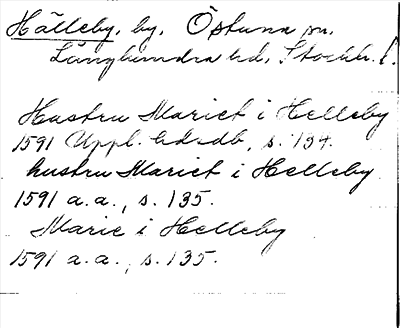 Hälleby, by, Östuna sn,
Långhundra hd, Stockh. l.
Hustru Mariet i Helleby
1591 Uppl. hdrdb, s. 134.
hustru Mariet i Helleby
1591 a.a., s. 135.
Marie i Helleby
1591 a.a., s. 135.